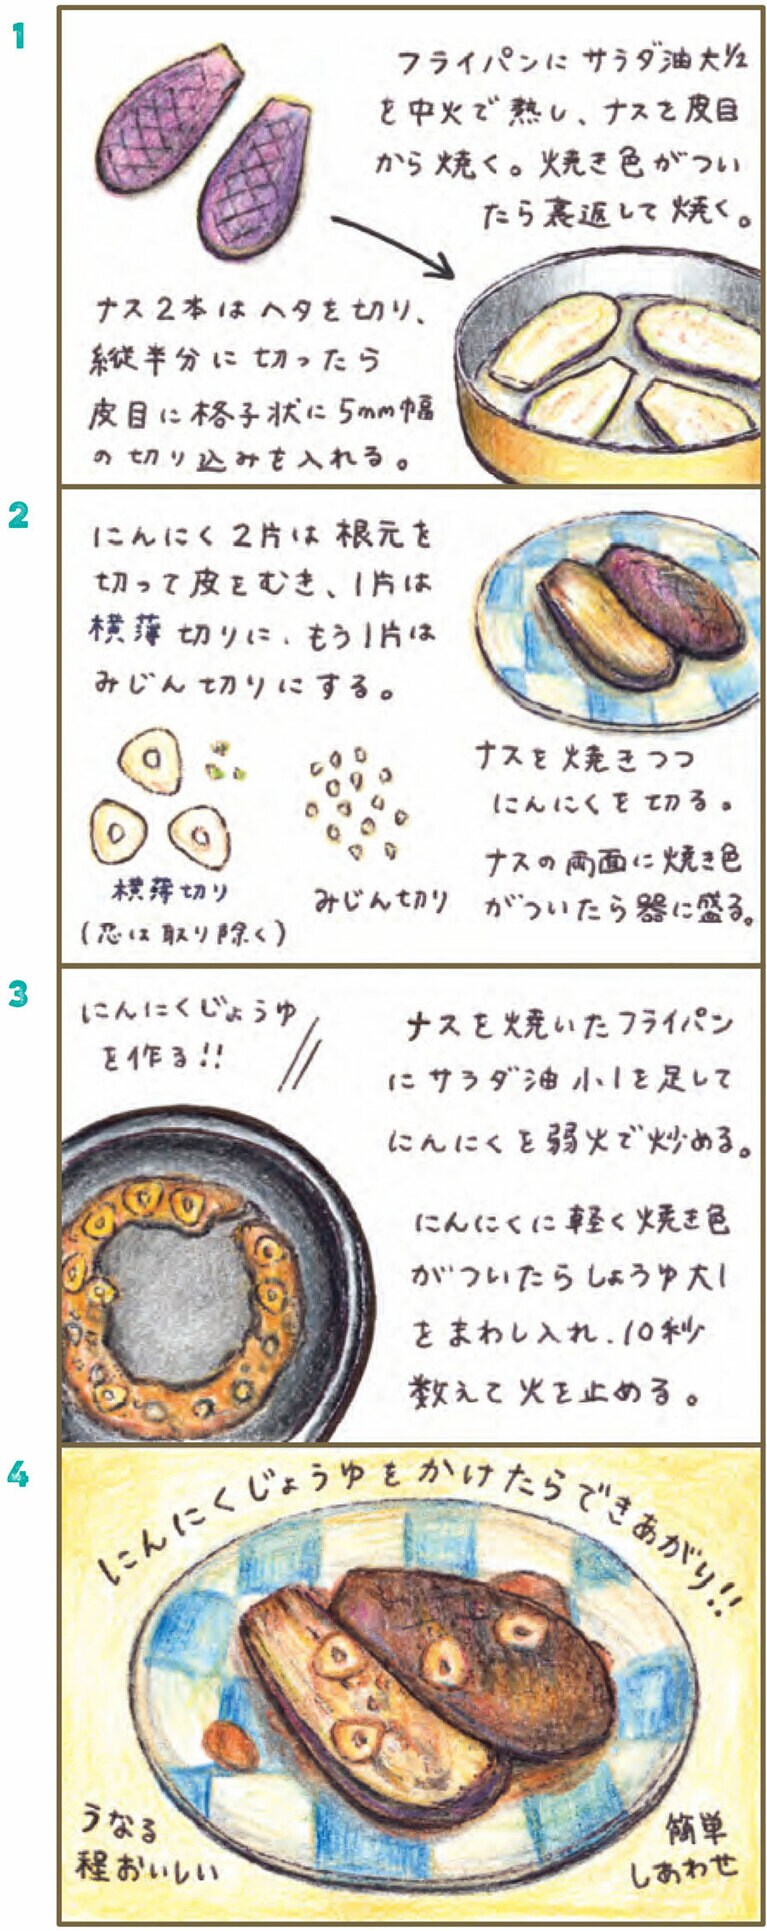 1
フライパンにサラダ油大1/2
を中火で熱し、ナスを皮目
から焼く。焼き色がつい
たら裏返して焼く。
ナス2本はヘタを切り、
縦半分に切ったら
皮目に格子状に5mm幅
の切り込みを入れる。
2
にんにく2片は根元を
切って皮をむき、1片は
横薄切りに、もう1片は
みじん切りにする。
横薄切り
(芯は取り除く)
みじん切り
ナスを焼きつつ
にんにくを切る。
ナスの両面に焼き色
がついたら器に盛る。
3
にんにくじょうゆ
を作る!!
ナスを焼いたフライパン
にサラダ油小1を足して
にんにくを弱火で炒める。
にんにくに軽く焼き色
がついたらしょうゆ大1
をまわし入れ、10秒
数えて火を止める。
4
にんにくじょうゆをかけたらできあがり!!
うなる
程おいしい
簡単
しあわせ